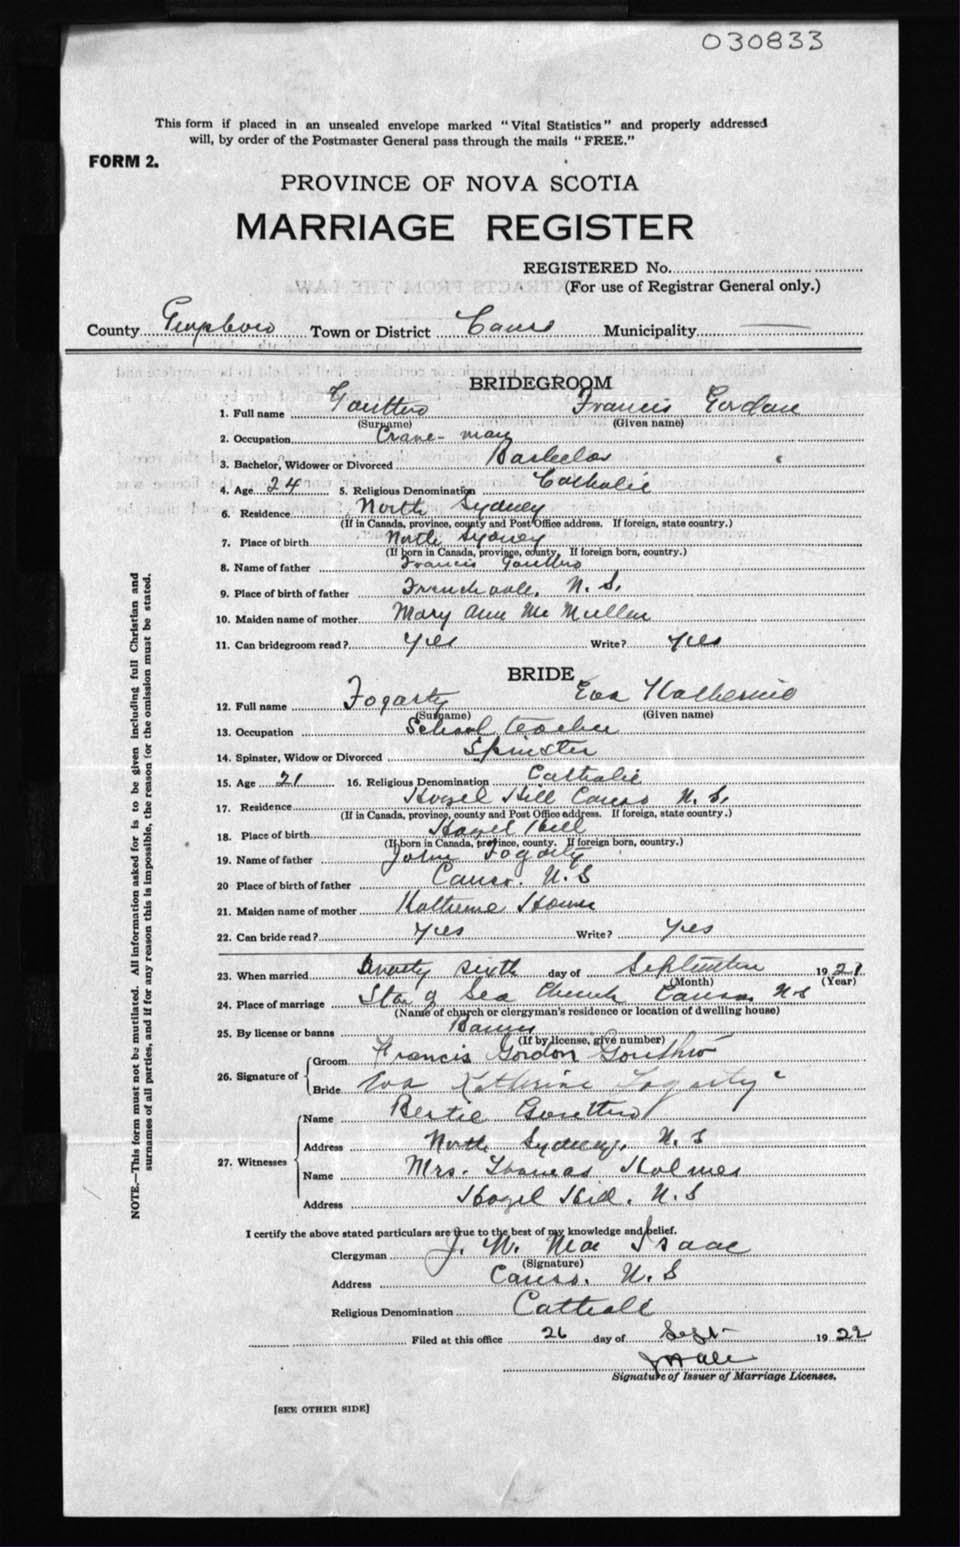 030833
This form if placed in an unsealed envelope marked "Vital Statistics" and properly addressed
will, by order of the Postmaster General pass through the mails "FREE."
FORM 2.
PROVINCE OF NOVA SCOTIA
MARRIAGE REGISTER
REGISTERED No.
(For use of Registrar General only.)
County Town or District Canso Municipality
BRIDEGROOM
1. Full name Gouthro Francis Gordon
(Surname) (Given name)
2. Occupation Crane-man
3. Bachelor, Widower or Divorced Bachelor
4. Age 24 5. Religious Denomination Catholic
6. Residence North Sydney
(If in Canada, province, county and Post Office address. If foreign, state country.)
7. Place of birth North Sydney
(If born in Canada, province, county. If foreign born, country.)
8. Name of father Francis Gouthro
9. Place of birth of father Frenchvale, N. S.
10. Maiden name of mother Mary Ann Mc Mullen
11. Can bridegroom read? Yes Write? Yes
BRIDE
12. Full name Fogarty Eva Katherine
(Surname) (Given name)
13. Occupation School teacher
14. Spinster, Widow or Divorced Spinster
15. Age 21 16. Religious Denomination Catholic
17. Residence Hazel Hill Canso N. S.
(If in Canada, province, county and Post Office address. If foreign, state country.)
18. Place of birth Hazel Hill
(If born in Canada, province, county. If foreign born, country.)
19. Name of father John Fogarty
20 Place of birth of father Canso. N. S
21. Maiden name of mother Katherine
22. Can bride read? Yes Write? Yes
23. When married sixth day of September 192
(Month) (Year)
24. Place of marriage Star of Sea Church Canso. N S
(Name of church or clergyman's residence or location of dwelling house)
25. By license or banns Banns
(If by license, give number)
26. Signature of Groom Francis Gordon Gouthro
Bride Eva Katherine Fogarty
27. Witnesses Name Bertie Gouthro
Address North Sydney, N. S
Name Mrs. Thomas Holmes
Address Hazel Hill. N. S
I certify the above stated particulars are true to the best of my knowledge and belief.
Clergyman J. W. Mac Isaac
(Signature)
Address Canso. N. S
Religious Denomination Catholic
Filed at this office 26 day of Sept 1922
Signature of Issuer of Marriage Licenses.
[SEE OTHER SIDE]
NOTE.—This form must not be mutilated. All information asked for is to be given including full Christian and
surnames of all parties, and if for any reason this is impossible, the reason for the omission must be stated.